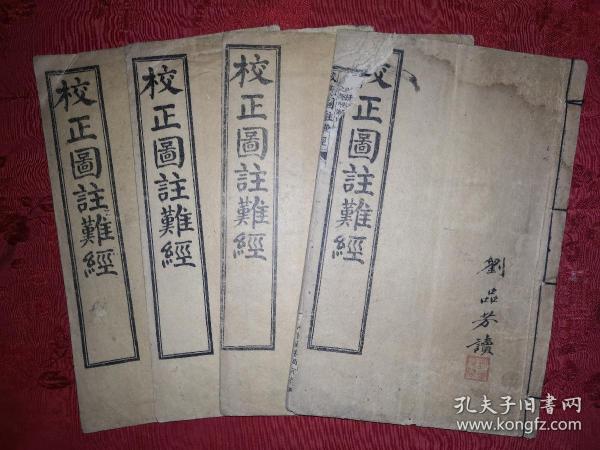 校正圖註難經
校正圖註難經
校正圖註難經
校正圖註難經
劉品芬讀
孔夫子旧书网
www.kongfz.com